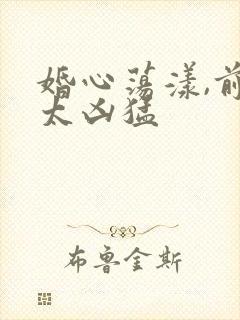 婚心荡漾,前
太凶猛
布鲁金斯